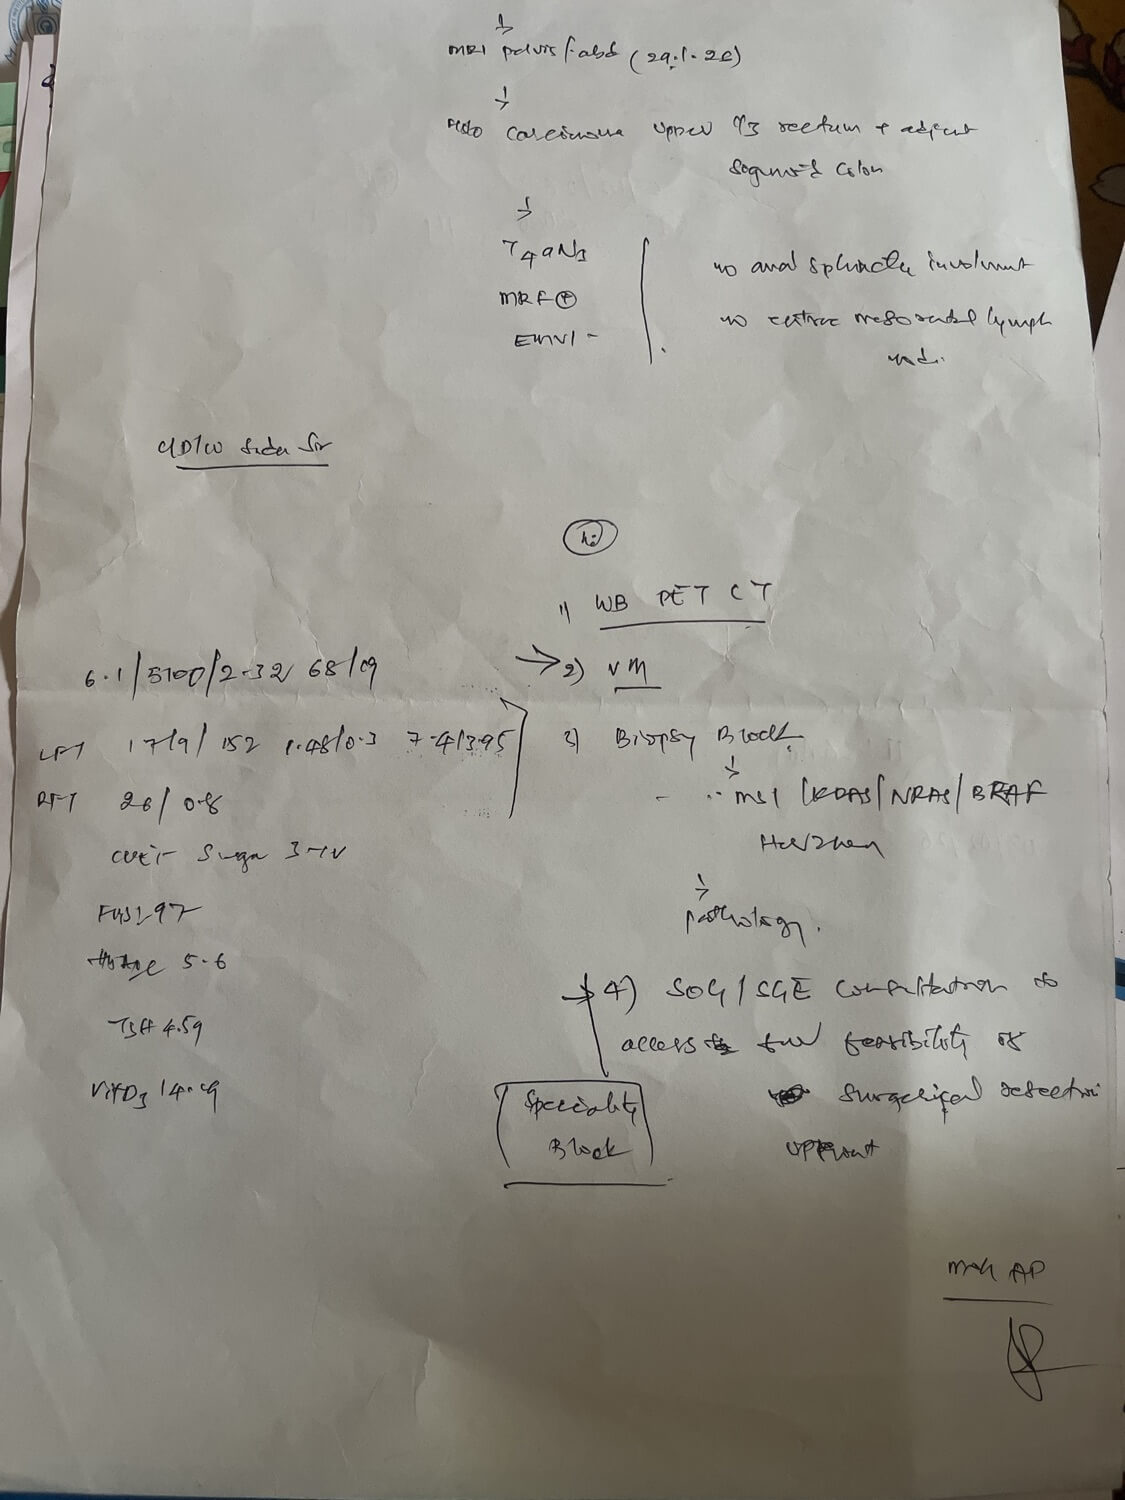 MRI pelvis/abd (29.1.26)
s/o carcinoma upper 1/3 rectum + adjacent
sigmoid colon
T4aN1
MRF ⊕
EMVI -
no anal sphincter involvement
no extra mesorectal lymph
node.
C/D/W Sir
Adv
1) WB PET CT
6.1/5100/2.32 68/19
→ 2) VM
LFT 17/9/152 1.48/0.3 7.4/3.95
3) Biopsy Block
RFT 26/0.8
MSI/KRAS/NRAS/BRAF
Her2neu
Sugar 3+
FBS 97
pathology.
HbA1c 5.6
→ 4) SOG/SGE consultation to
TSH 4.59
access for feasibility of
VitD3 14.19
surgical resection
upfront
Speciality
Block
AP